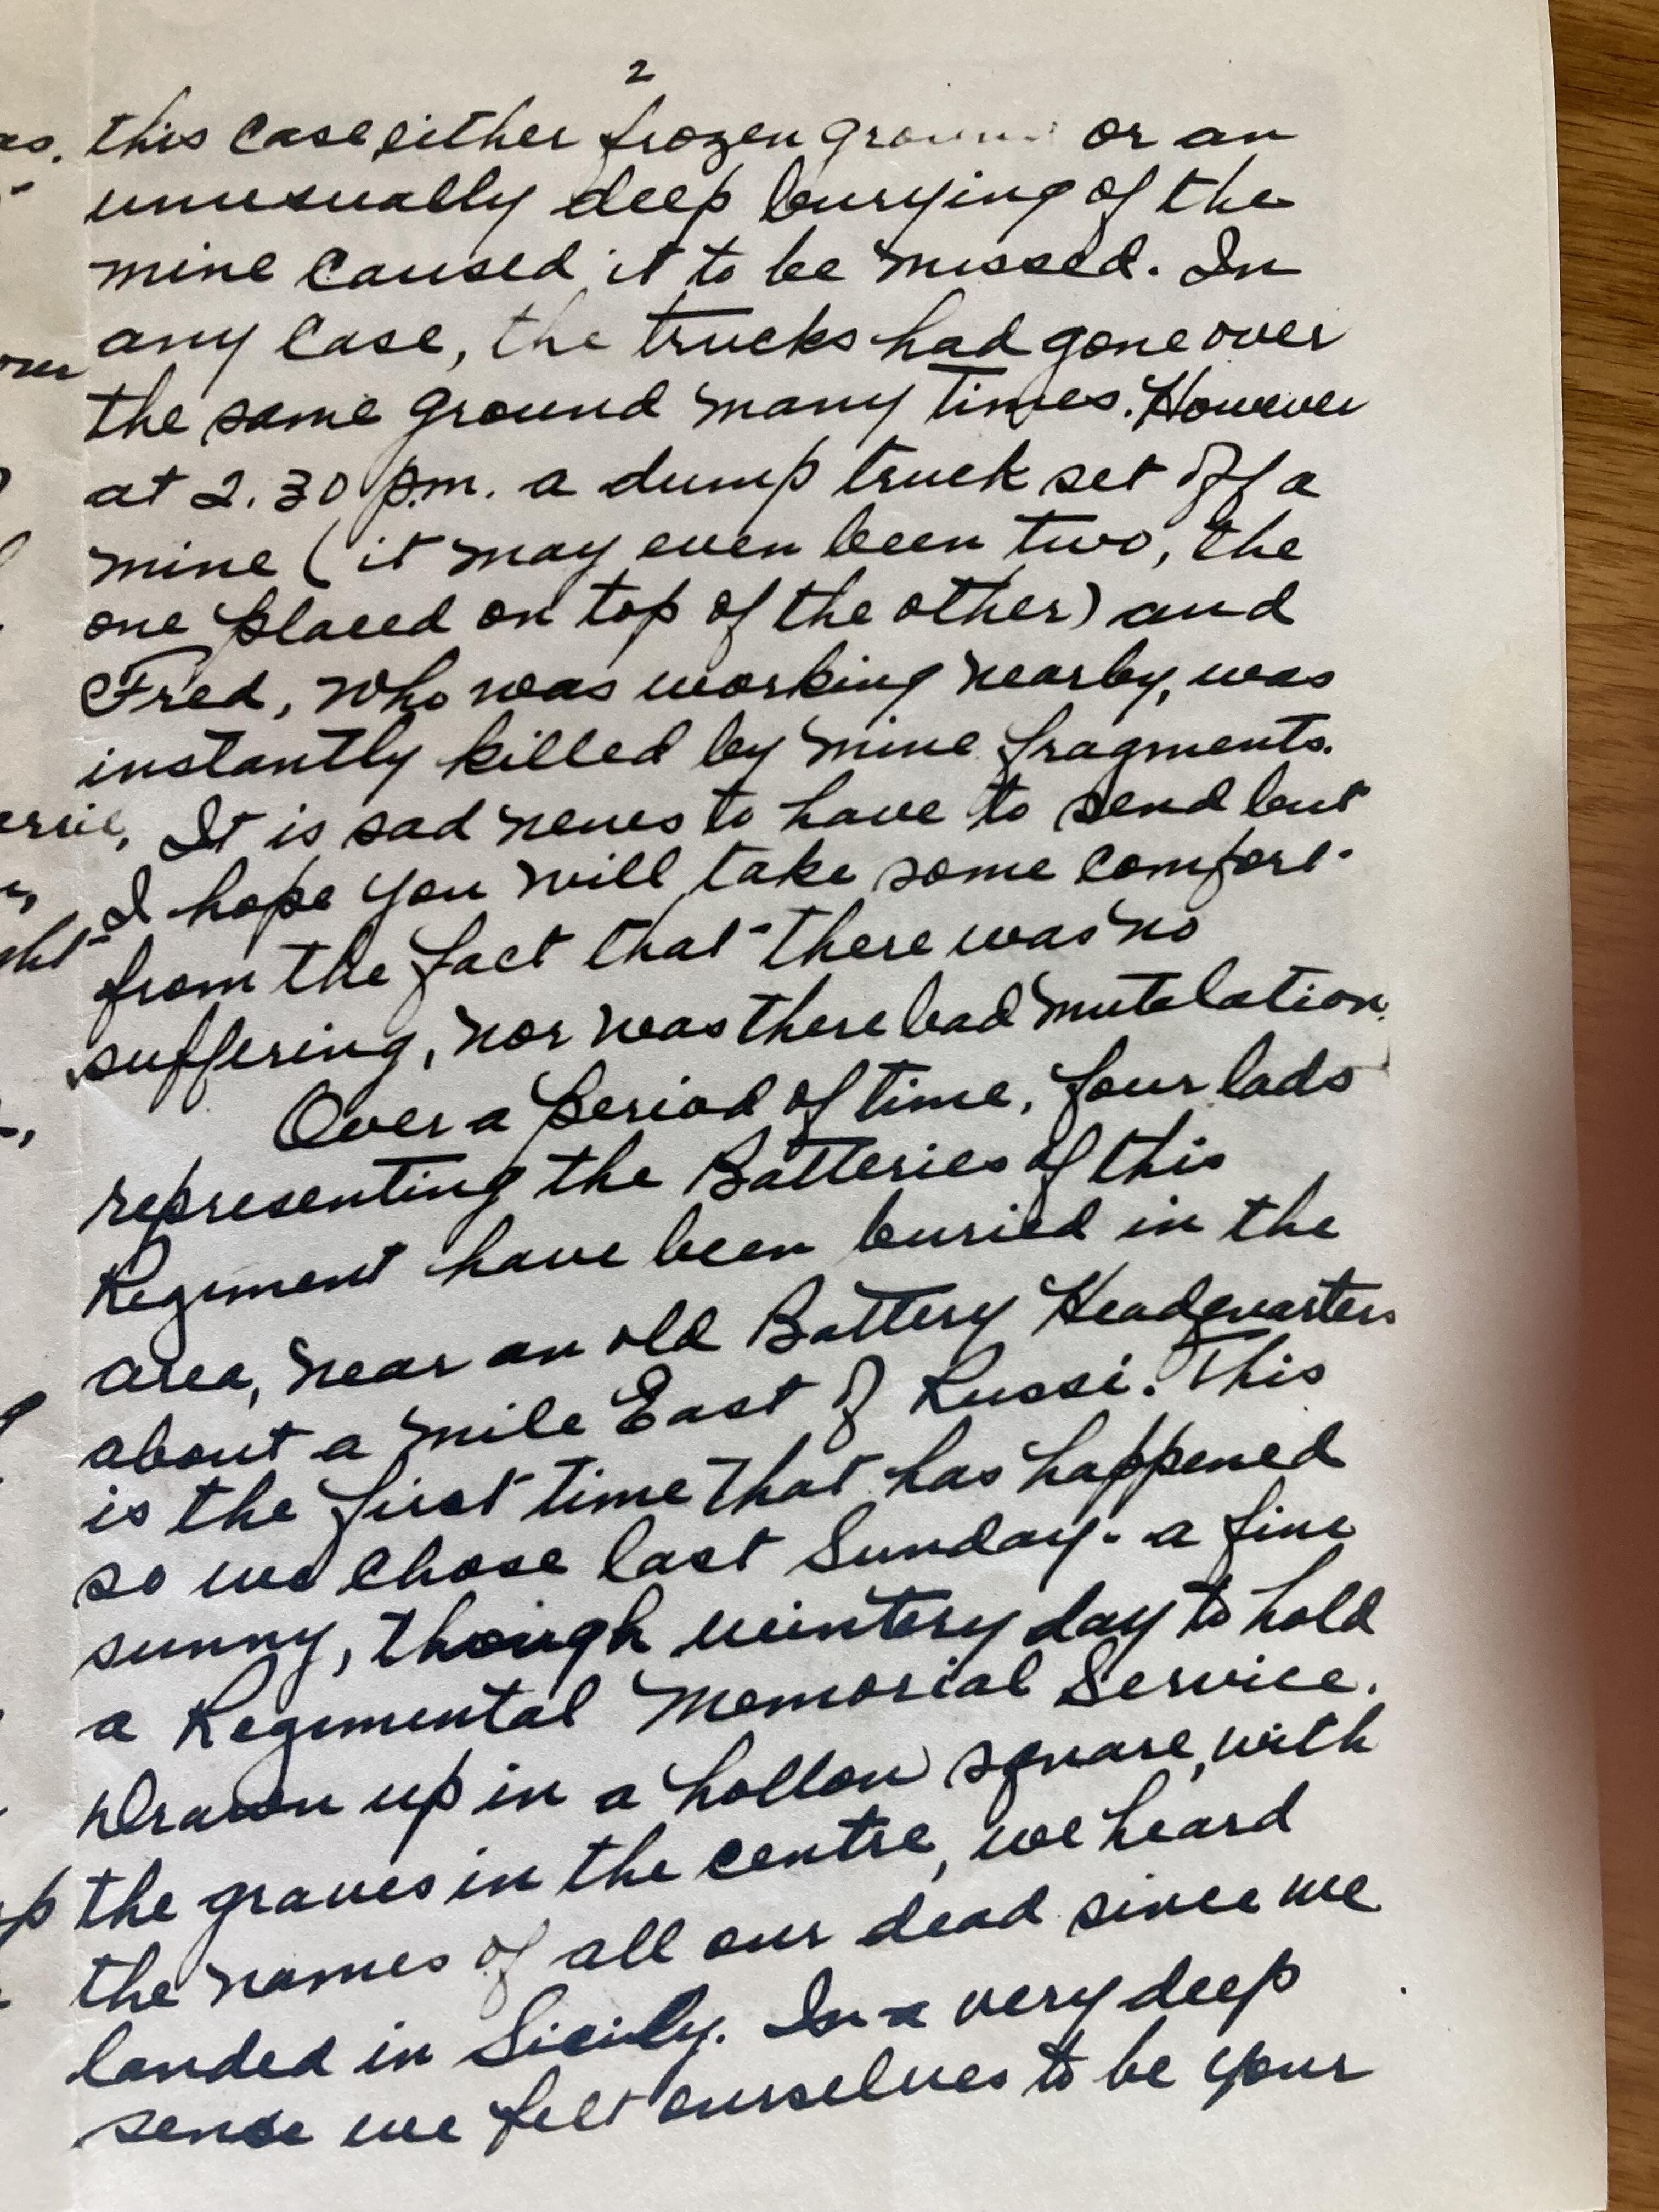 2
this case either frozen ground or an
unusually deep burying of the
mine caused it to be missed. In
any case, the trucks had gone over
the same ground many times. However
at 2.30 p.m. a dump truck set off a
mine (it may even been two, the
one placed on top of the other) and
Fred, who was working nearby, was
instantly killed by mine fragments.
It is sad news to have to send but
I hope you will take some comfort
from the fact that there was no
suffering, nor was there bad mutalation.
Over a period of time, four lads
representing the Batteries of this
Regiment have been buried in the
area, near an old Battery Headquarters
about a mile East of Russi. This
is the first time that has happened
so we chose last Sunday - a fine
sunny, though wintery day to hold
a Regimental Memorial Service.
Drawn up in a hollow square, with
the graves in the centre, we heard
the names of all our dead since we
landed in Sicily. In a very deep
sense we felt ourselves to be your